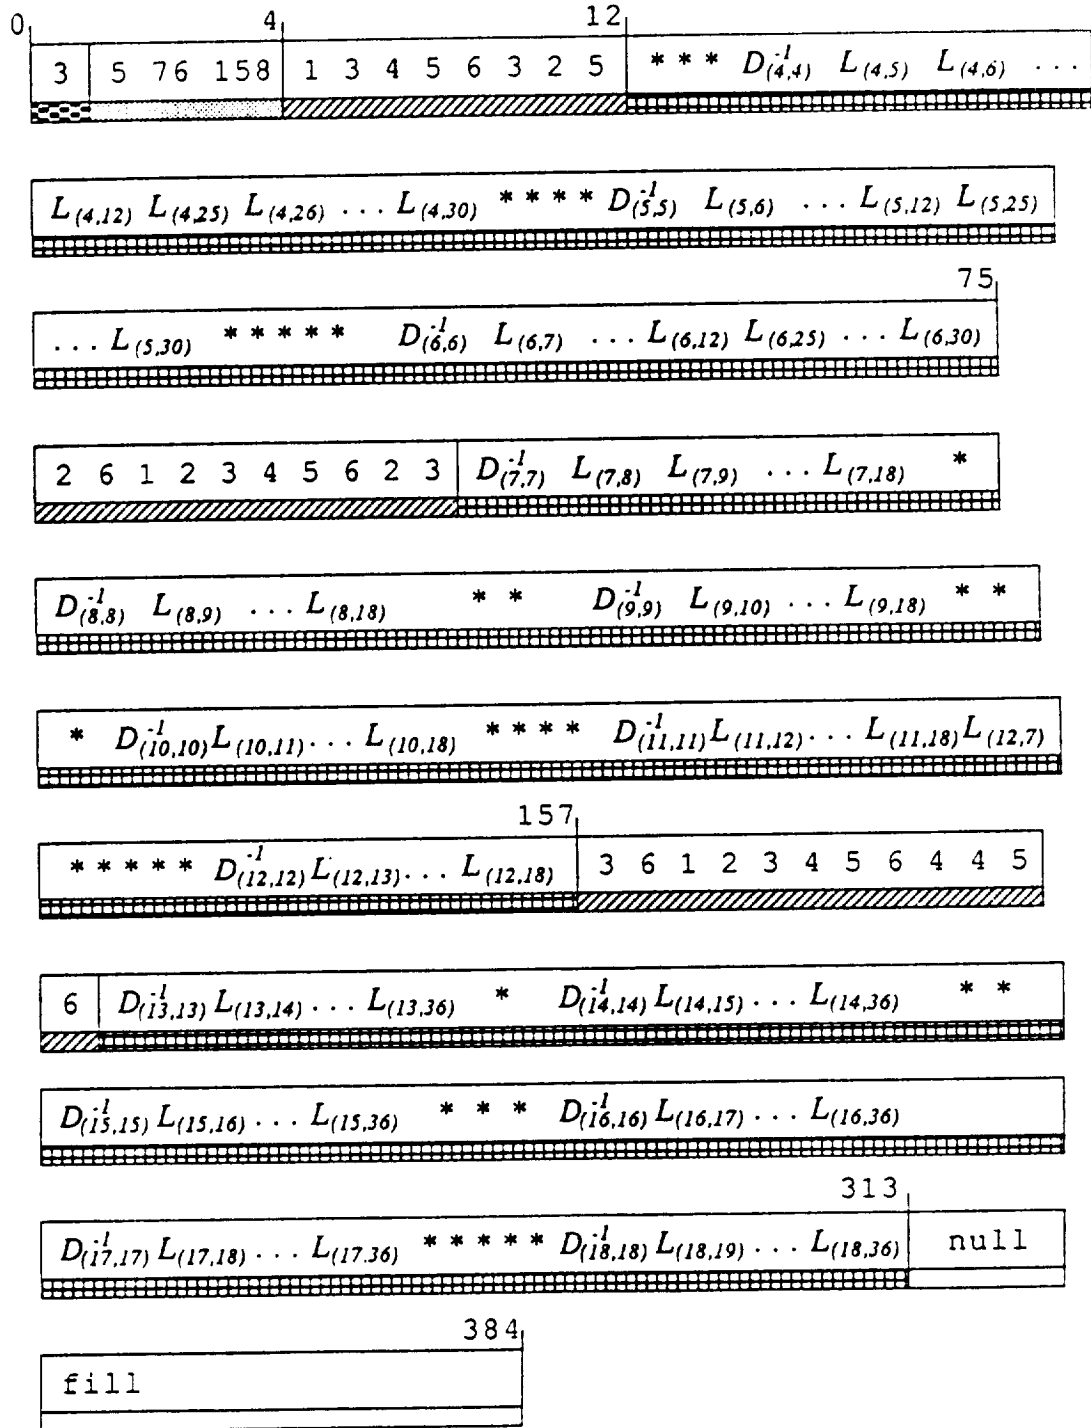 0 4 12
3 5 76 158 1 3 4 5 6 3 2 5 * * * D^{-1}_{(4,4)} L_{(4,5)} L_{(4,6)} ...
L_{(4,12)} L_{(4,25)} L_{(4,26)} ... L_{(4,30)} * * * * D^{-1}_{(5,5)} L_{(5,6)} ... L_{(5,12)} L_{(5,25)}
75
... L_{(5,30)} * * * * * D^{-1}_{(6,6)} L_{(6,7)} ... L_{(6,12)} L_{(6,25)} ... L_{(6,30)}
2 6 1 2 3 4 5 6 2 3 D^{-1}_{(7,7)} L_{(7,8)} L_{(7,9)} ... L_{(7,18)} *
D^{-1}_{(8,8)} L_{(8,9)} ... L_{(8,18)} * * D^{-1}_{(9,9)} L_{(9,10)} ... L_{(9,18)} * *
* D^{-1}_{(10,10)} L_{(10,11)} ... L_{(10,18)} * * * * D^{-1}_{(11,11)} L_{(11,12)} ... L_{(11,18)} L_{(12,7)}
157
* * * * * D^{-1}_{(12,12)} L_{(12,13)} ... L_{(12,18)} 3 6 1 2 3 4 5 6 4 4 5
6 D^{-1}_{(13,13)} L_{(13,14)} ... L_{(13,36)} * D^{-1}_{(14,14)} L_{(14,15)} ... L_{(14,36)} * *
D^{-1}_{(15,15)} L_{(15,16)} ... L_{(15,36)} * * * D^{-1}_{(16,16)} L_{(16,17)} ... L_{(16,36)}
313
D^{-1}_{(17,17)} L_{(17,18)} ... L_{(17,36)} * * * * * D^{-1}_{(18,18)} L_{(18,19)} ... L_{(18,36)} null
384
fill